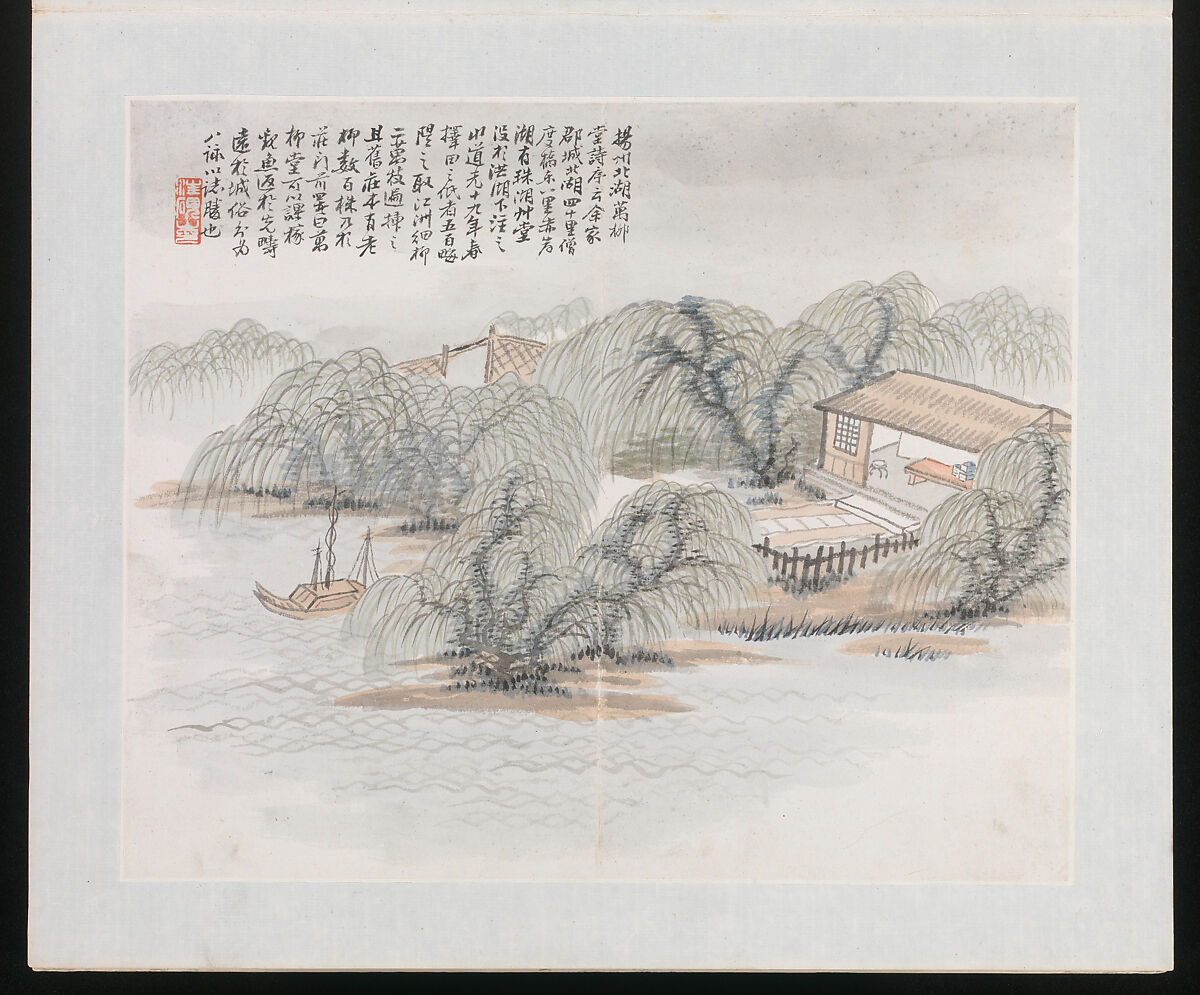 揚州北湖萬柳
堂詩序云余家
郡城北湖四十里僧
度橋东八里赤岸
湖有珠湖艸堂
没於洪湖下注之
水道光十九年春
擇田之低者五百畝
隄之取江洲細柳
二萬枝遍揷之
且舊莊本有老
柳数百株乃於
莊門前署曰萬
柳堂可以課稼
觀魚返於先疇
遠於城俗分为
八詠以誌勝也